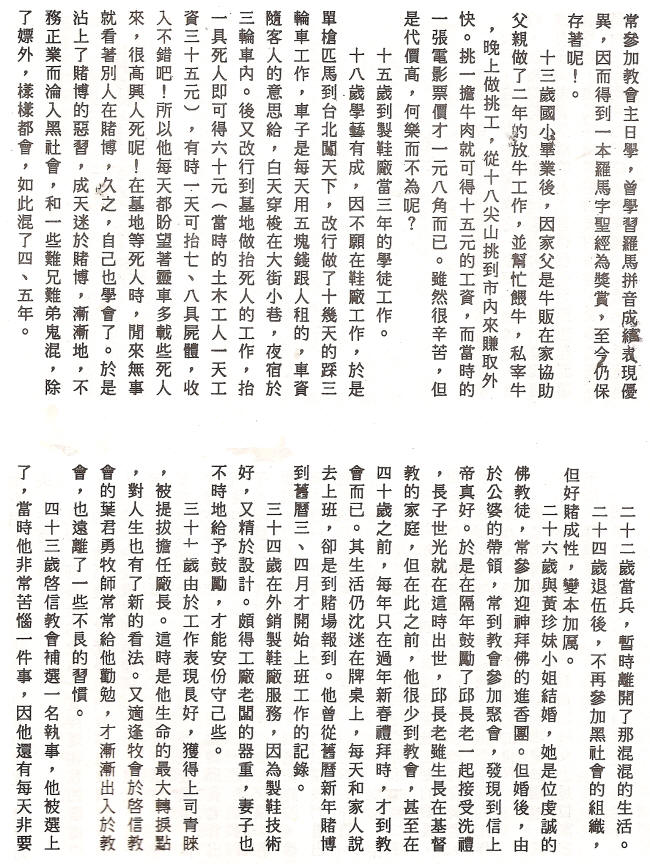 常參加教會主日學，曾學習羅馬拼音成績表現優
異，因而得到一本羅馬字聖經為獎賞，至今仍保
存著呢！。
十三歲國小畢業後，因家父是牛販在家協助
父親做了二年的放牛工作，並幫忙餵牛，私宰牛
，晚上做挑工，從十八尖山挑到市內來賺取外
快。挑一擔牛肉就可得十五元的工資，而當時的
一張電影票價才一元八角而已。雖然很辛苦，但
是代價高，何樂而不為呢？
十五歲到製鞋廠當三年的學徒工作。
十八歲學藝有成，因不願在鞋廠工作，於是
單槍匹馬到台北闖天下，改行做了十幾天的踩三
輪車工作，車子是每天用五塊錢跟人租的，車資
隨客人的意思給，白天穿梭在大街小巷，夜宿於
三輪車內。後又改行到墓地做抬死人的工作，抬
一具死人即可得六十元（當時的土木工人一天工
資三十五元），有時一天可抬七、八具屍體，收
入不錯吧！所以他每天都盼望著靈車多載些死人
來，很高興人死呢！在墓地等死人時，閒來無事
就看著別人在賭博，久之，自己也學會了。於是
沾上了賭博的惡習，成天迷於賭博，漸漸地，不
務正業而淪入黑社會，和一些難兄難弟鬼混，除
了嫖外，樣樣都會，如此混了四、五年。
二十二歲當兵，暫時離開了那混混的生活。
二十四歲退伍後，不再參加黑社會的組織，
但好賭成性，變本加厲。
二十六歲與黃珍妹小姐結婚，她是位虔誠的
佛教徒，常參加迎神拜佛的進香團。但婚後，由
於公婆的帶領，常到教會參加聚會，發現到信上
帝真好。於是在隔年鼓勵了邱長老一起接受洗禮
，長子世光就在這時出世，邱長老雖生長在基督
教的家庭，但在此之前，他很少到教會，甚至在
四十歲之前，每年只在過年新春禮拜時，才到教
會而已。其生活仍沈迷在牌桌上，每天和家人說
去上班，卻是到賭場報到。他曾從舊曆新年賭博
到舊曆三、四月才開始上班工作的記錄。
三十四歲在外銷製鞋廠服務，因為製鞋技術
好，又精於設計。頗得工廠老闆的器重，妻子也
不時地給予鼓勵，才能安份守己些。
三十七歲由於工作表現良好，獲得上司青睞
，被提拔擔任廠長。這時是他生命的最大轉捩點
，對人生也有了新的看法。又適逢牧會於啓信教
會的葉君勇牧師常常給他勸勉，才漸漸出入於教
會，也遠離了一些不良的習慣。
四十三歲啓信教會補選一名執事，他被選上
了，當時他非常苦惱一件事，因他還有每天非要